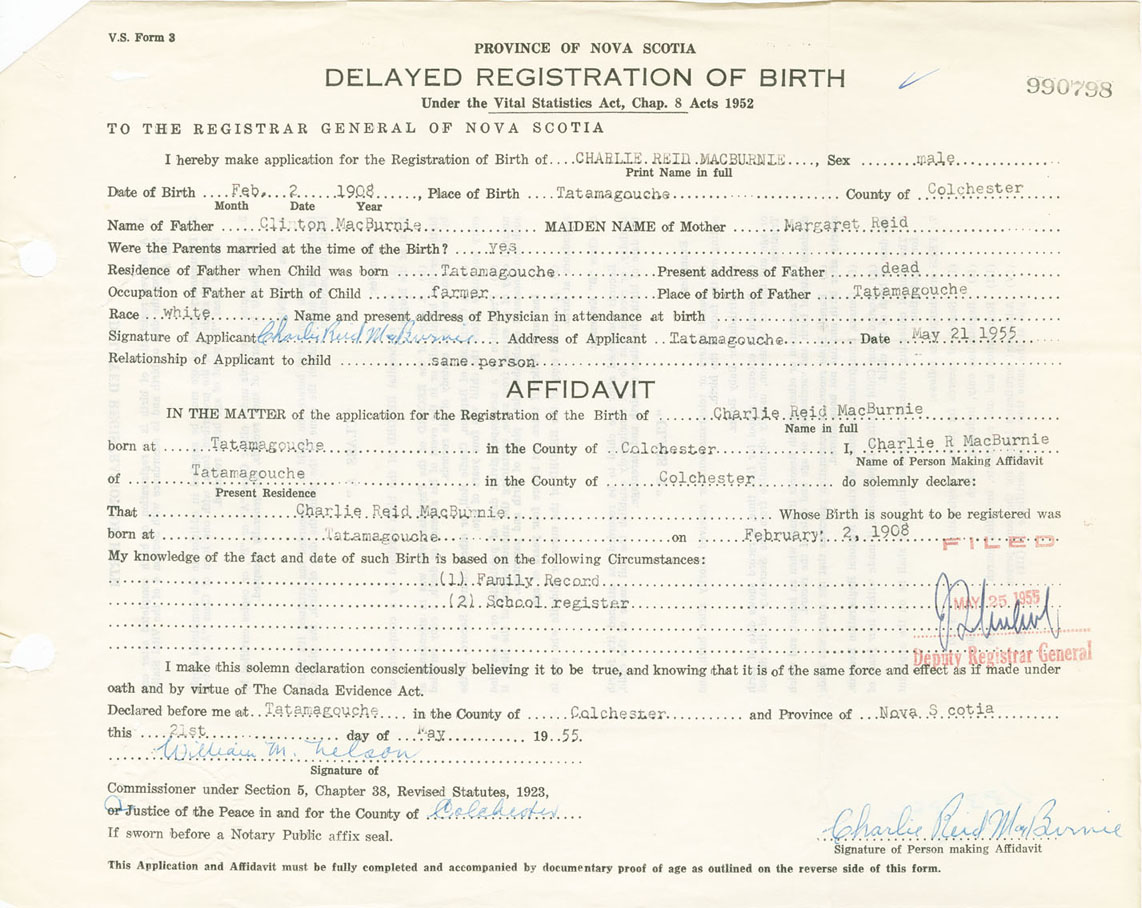 V.S. Form 3
PROVINCE OF NOVA SCOTIA
DELAYED REGISTRATION OF BIRTH
990798
Under the Vital Statistics Act, Chap. 8 Acts 1952
TO THE REGISTRAR GENERAL OF NOVA SCOTIA
I hereby make application for the Registration of Birth of....CHARLIE REID MACBURNIE...., Sex .......male....................
Print Name in full
Date of Birth ....Feb. 2 1908......, Place of Birth ...Tatamagouche.................. County of ..Colchester......
Month Date Year
Name of Father .....Clinton MacBurnie................. MAIDEN NAME of Mother .......Margaret Reid..........
Were the Parents married at the time of the Birth? .....yes..........
Residence of Father when Child was born ......Tatamagouche..............Present address of Father ........dead..........
Occupation of Father at Birth of Child ........farmer..................Place of birth of Father ....Tatamagouche..........
Race ...white........... Name and present address of Physician in attendance at birth ..........
Signature of Applicant Charlie Reid MacBurnie.... Address of Applicant ...Tatamagouche.......... Date ...May 21 1955......
Relationship of Applicant to child ............same person..........
AFFIDAVIT
IN THE MATTER of the application for the Registration of the Birth of .......Charlie Reid MacBurnie..........
Name in full
born at .......Tatamagouche.................. in the County of ..Colchester.................. I, Charlie R MacBurnie
Name of Person Making Affidavit
of ..........Tatamagouche.................. in the County of .......Colchester............ do solemnly declare:
Present Residence
That ..................Charlie Reid MacBurnie.................. Whose Birth is sought to be registered was
born at ..................Tatamagouche..................on ......February 2, 1908..........
FILED
My knowledge of the fact and date of such Birth is based on the following Circumstances:
(1) Family Record
(2) School register
MAY 25 1955
Deputy Registrar General
I make this solemn declaration conscientiously believing it to be true, and knowing that it is of the same force and effect as if made under
oath and by virtue of The Canada Evidence Act.
Declared before me at..Tatamagouche.... in the County of ......Colchester............ and Province of ...Nova Scotia..........
this ....21st.................. day of ..May............ 19..55.....
William M. Nelson
Signature of
Commissioner under Section 5, Chapter 38, Revised Statutes, 1923,
or Justice of the Peace in and for the County of Colchester....
If sworn before a Notary Public affix seal.
Charlie Reid MacBurnie
Signature of Person making Affidavit
This Application and Affidavit must be fully completed and accompanied by documentary proof of age as outlined on the reverse side of this form.